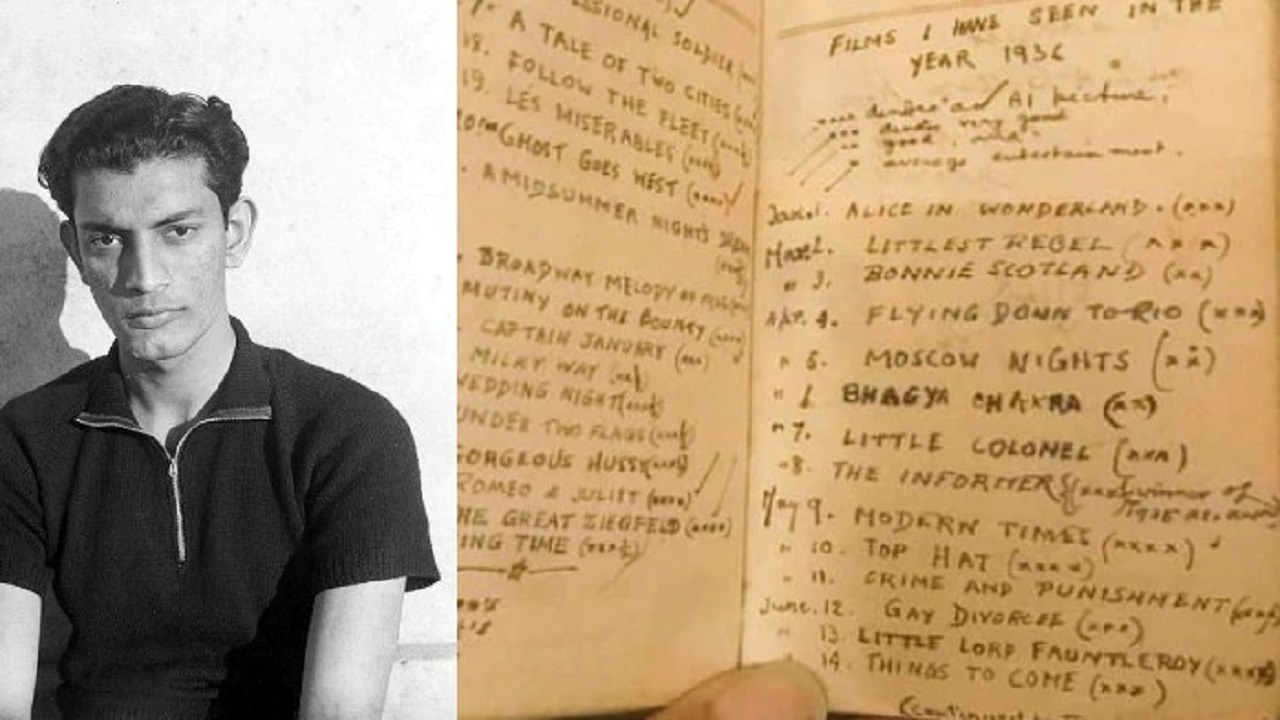 SSIONAL SOLDIER
A TALE OF TWO CITIES
18. FOLLOW THE FLEET
19. LES MISERABLES
GHOST GOES WEST (xxxx) ✓
A MIDSUMMER NIGHT'S
BROADWAY MELODY OF
MUTINY ON THE BOUNTY
CAPTAIN JANUARY (xxx)
MILKY WAY
WEDDING NIGHT
UNDER TWO FLAGS
GORGEOUS HUSSY
ROMEO & JULIET (xxxx)
HE GREAT ZIEGFELD (xxxx)
ING TIME
FILMS I HAVE SEEN IN THE
YEAR 1936
xxxx denotes an A1 picture,
xxx denotes very good
xx good, and
x average entertainment.
1. ALICE IN WONDERLAND. (xxx)
2. LITTLEST REBEL (xxx)
" 3. BONNIE SCOTLAND (xx)
Apr. 4. FLYING DOWN TO RIO (xxx)
" 5. MOSCOW NIGHTS (xx)
" BHAGYA CHAKRA (xx)
" 7. LITTLE COLONEL (xxx)
" 8. THE INFORMER winner of
1935
May 9. MODERN TIMES (xxxx)
" 10. TOP HAT (xxxx)
" 11. CRIME AND PUNISHMENT
June. 12. GAY DIVORCEE (xxx)
" 13. LITTLE LORD FAUNTLEROY (xxxx)
" 14. THINGS TO COME (xxx)
(continued